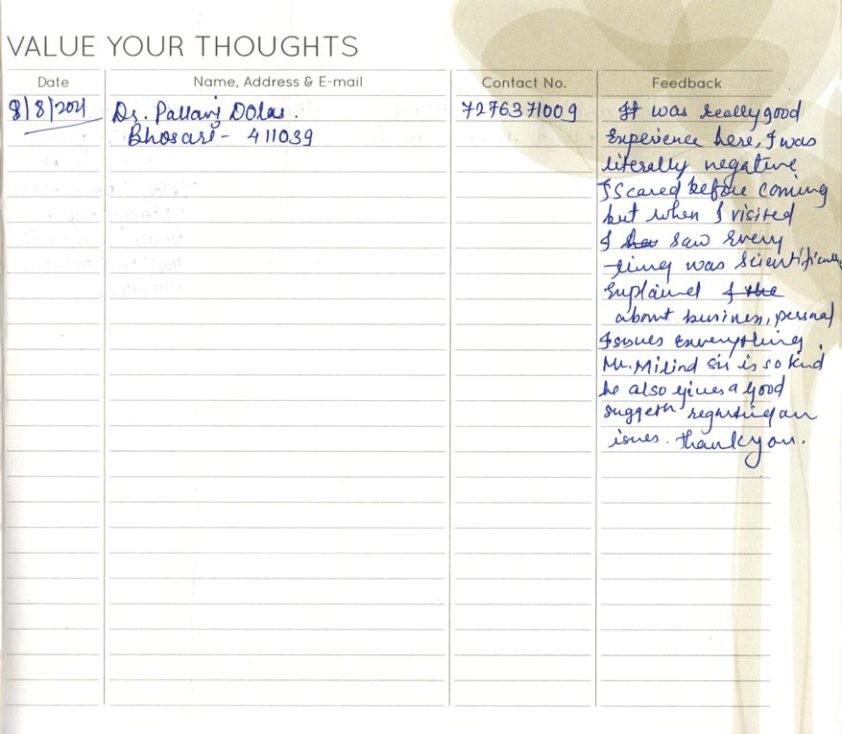 VALUE YOUR THOUGHTS
Date Name, Address & E-mail Contact No. Feedback
8/8/2021 Dr. Pallavi Dolas. 7276371009 It was really good
Bhosari - 411039 Experience here, I was
literally negative
& Scared before coming
but when I visited
I saw Every
ting was Scientifically
Explained & the
about business, personal
Issues Enverything.
Mr. Milind Sir is so kind
he also gives a good
suggestn regarding an
isues. thank you.